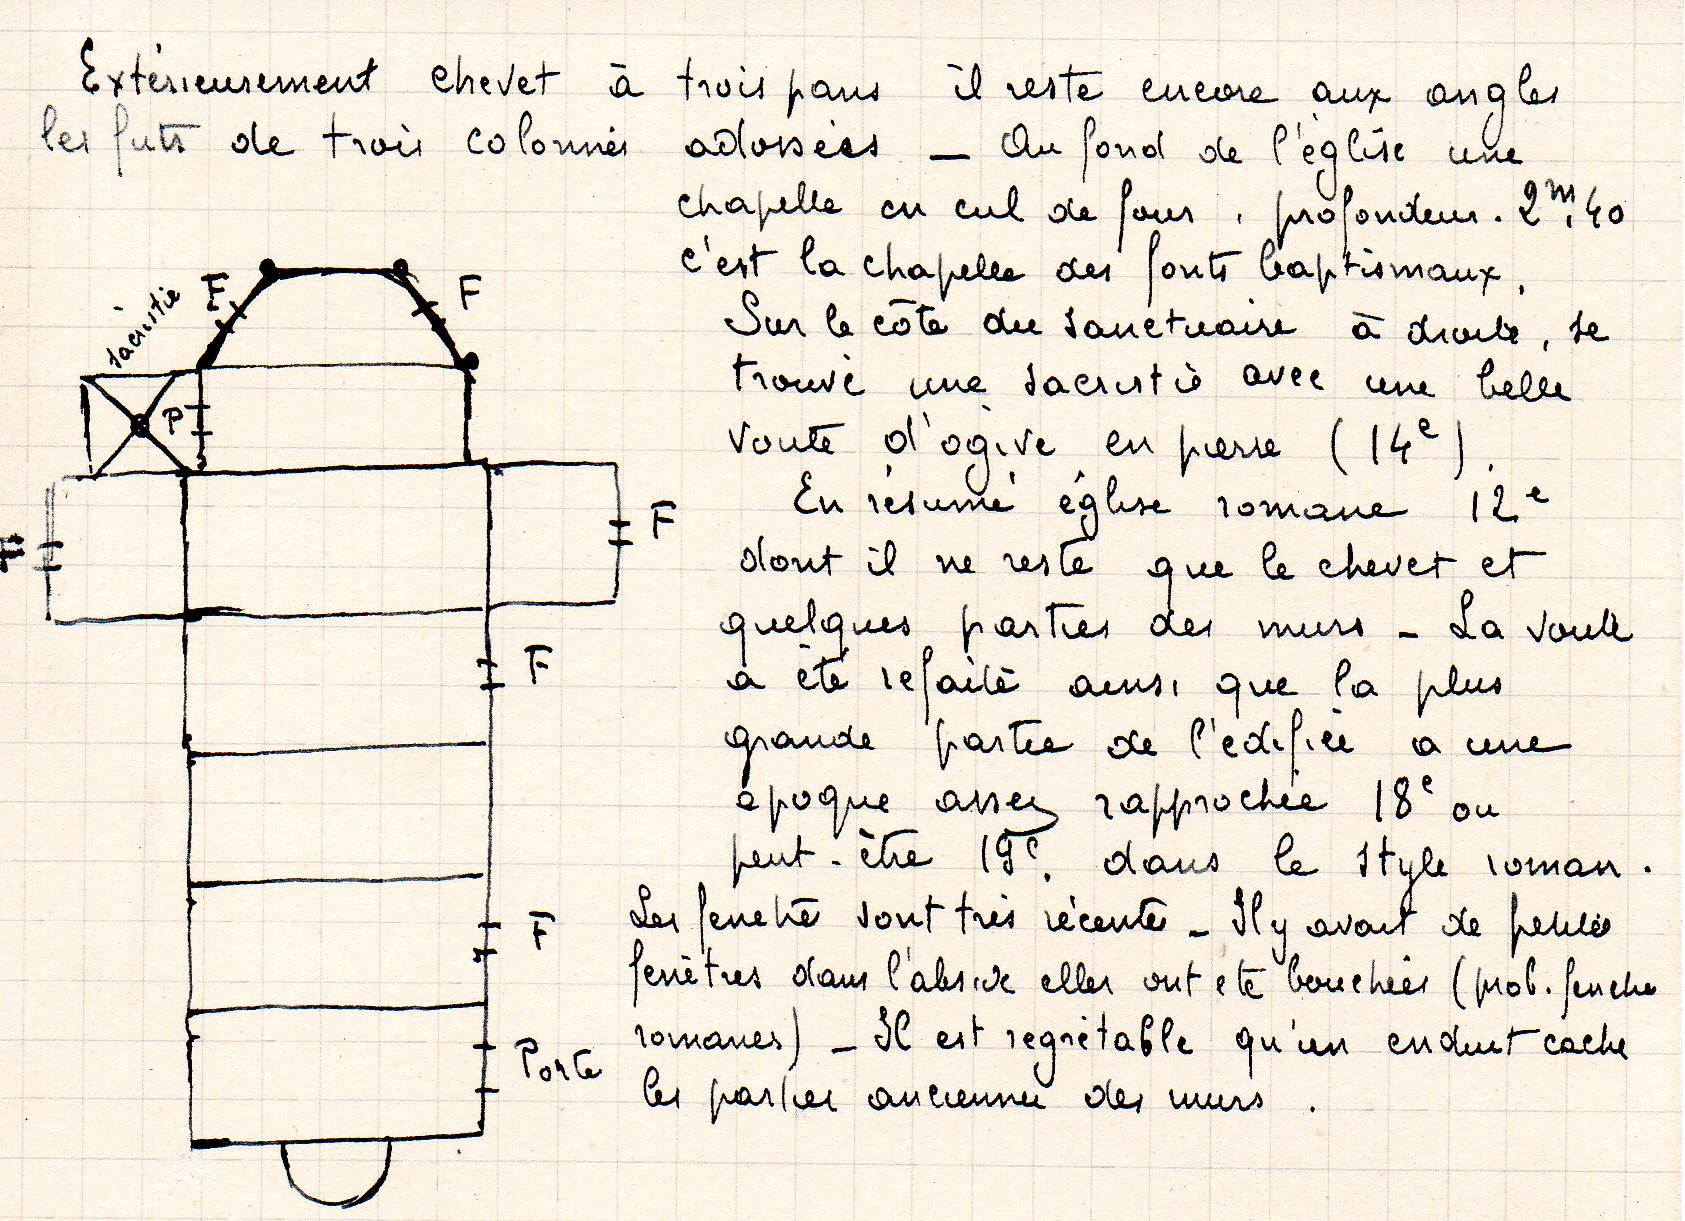 Extérieurement chevet à trois pans il reste encore aux angles
les futs de trois colonnes adossées _ Au fond de l'église une
chapelle en cul de four, profondeur. 2m,40
c'est la chapelle des fonts baptismaux.
Sur le côté du sanctuaire à droite, se
trouve une sacristie avec une belle
voute d'ogive en pierre (14e).
En résumé église romane 12e
dont il ne reste que le chevet et
quelques parties des murs _ La voute
a été refaite ainsi que la plus
grande partie de l'édifice a une
époque assez rapprochée 18e ou
peut-être 19e. dans le style roman.
Les fenetres sont très récentes _ Il y avait de petites
fenêtres dans l'abside elles ont été bouchées (prob. fenetres
romanes) _ Il est regrétable qu'un enduit cache
les parties anciennes des murs.
sacristie
F
F
P
F
F
F
F
Porte